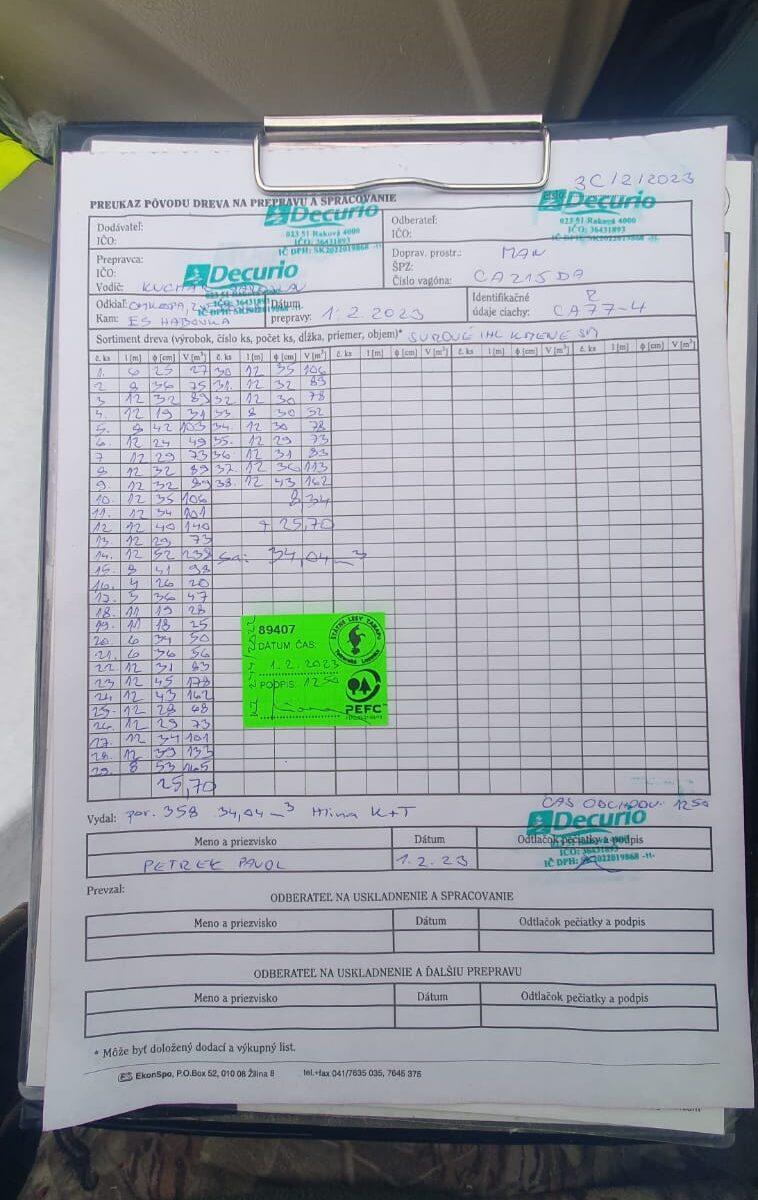 3C/2/2023
PREUKAZ PÔVODU DREVA NA PREPRAVU A SPRACOVANIE
Dodávateľ:
IČO:
Decurio
023 51 Raková 4000
IČO: 36431893
IČ DPH: SK2022019868 -11-
Odberateľ:
IČO:
Decurio
023 51 Raková 4000
IČO: 36431893
IČ DPH: SK2022019868 -11-
Prepravca:
IČO:
Vodič:
Decurio
Doprav. prostr.: MAN
ŠPZ:
Číslo vagóna: CA215DA
Odkiaľ:
Kam: ES HABOVKA
Dátum
prepravy: 1.2.2023
Identifikačné
údaje ciachy: CA77-4
Sortiment dreva (výrobok, číslo ks, počet ks, dĺžka, priemer, objem)* SUROVÉ IHL KMENE SM
č. ks l [m] φ [cm] V [m³] č. ks l [m] φ [cm] V [m³] č. ks l [m] φ [cm] V [m³] č. ks l [m] φ [cm] V [m³] č. ks l [m] φ [cm] V [m³]
1. 6 25 27 30 12 35 106
2 8 36 75 31. 12 32 89
3 12 32 89 32. 12 30 78
4. 12 19 31 33 8 30 52
5. 8 42 103 34. 12 30 78
6 12 24 49 35. 12 29 73
7 12 29 73 36. 12 31 83
8 12 32 89 37. 12 36 113
9. 12 32 89 38. 12 43 162
10. 12 35 106 8,34
11. 12 34 101
12 12 40 140 + 25,70
13. 12 29 73
14. 12 52 238 Sa: 34,04 m³
15. 8 41 98
16. 4 26 20
17. 5 36 47
18. 11 19 28
19. 11 18 25
20. 6 34 50
21. 6 36 56
22 12 31 83
23 12 45 178
24 12 43 162
25. 12 28 68
26. 12 29 73
27. 12 34 101
28. 12 39 133
29. 8 53 165
25,70
89407
DÁTUM ČAS:
1.2.2023
PODPIS: 1250
ŠTÁTNE LESY TANAPU
Tatranská Lomnica
PEFC
Vydal: por. 358 34,04 m³ Hlina K+T
ČAS ODCHODU: 1250
Decurio
023 51 Raková 4000
IČO: 36431893
IČ DPH: SK2022019868 -11-
Meno a priezvisko Dátum Odtlačok pečiatky a podpis
PETREK PAVOL 1.2.23
Prevzal:
ODBERATEĽ NA USKLADNENIE A SPRACOVANIE
Meno a priezvisko Dátum Odtlačok pečiatky a podpis
ODBERATEĽ NA USKLADNENIE A ĎALŠIU PREPRAVU
Meno a priezvisko Dátum Odtlačok pečiatky a podpis
* Môže byť doložený dodací a výkupný list.
ES EkonSpo, P.O.Box 52, 010 08 Žilina 8 tel.+fax 041/7635 035, 7645 376